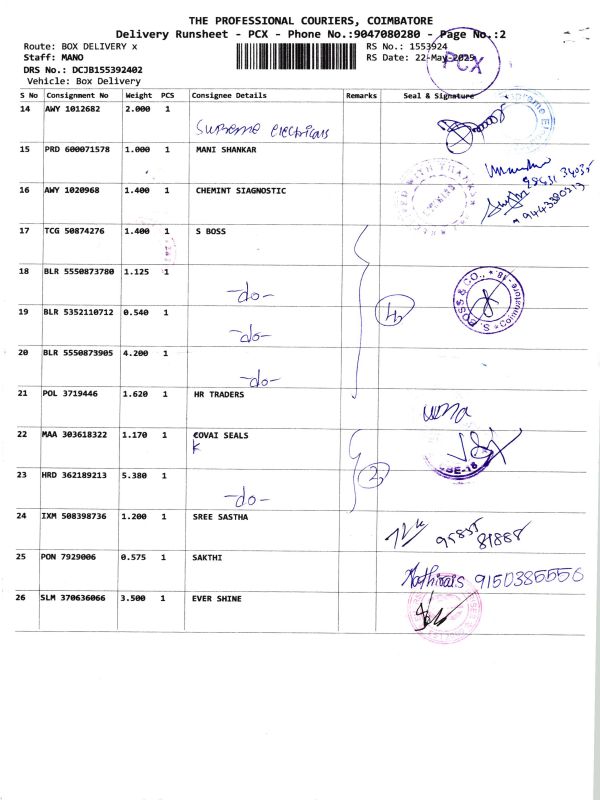 THE PROFESSIONAL COURIERS, COIMBATORE
Delivery Runsheet - PCX - Phone No.:9047080280 - Page No.:2
Route: BOX DELIVERY x
RS No.: 1553924
Staff: MANO
RS Date: 22-May-2025
DRS No.: DCJB155392402
Vehicle: Box Delivery
PCX
S No Consignment No Weight PCS Consignee Details Remarks Seal & Signature
14 AWY 1012682 2.000 1
Supreme electricals
15 PRD 600071578 1.000 1 MANI SHANKAR
16 AWY 1020968 1.400 1 CHEMINT SIAGNOSTIC
9443380513
17 TCG 50874276 1.400 1 S BOSS
18 BLR 5550873780 1.125 1
-do-
S. BOSS & CO., * Coimbatore-18. *
4
19 BLR 5352110712 0.540 1
-do-
20 BLR 5550873905 4.200 1
-do-
21 POL 3719446 1.620 1 HR TRADERS
22 MAA 303618322 1.170 1 COVAI SEALS
K
23 HRD 362189213 5.380 1
-do-
2
24 IXM 508398736 1.200 1 SREE SASTHA
25 PON 7929006 0.575 1 SAKTHI
9150385556
26 SLM 370636066 3.500 1 EVER SHINE